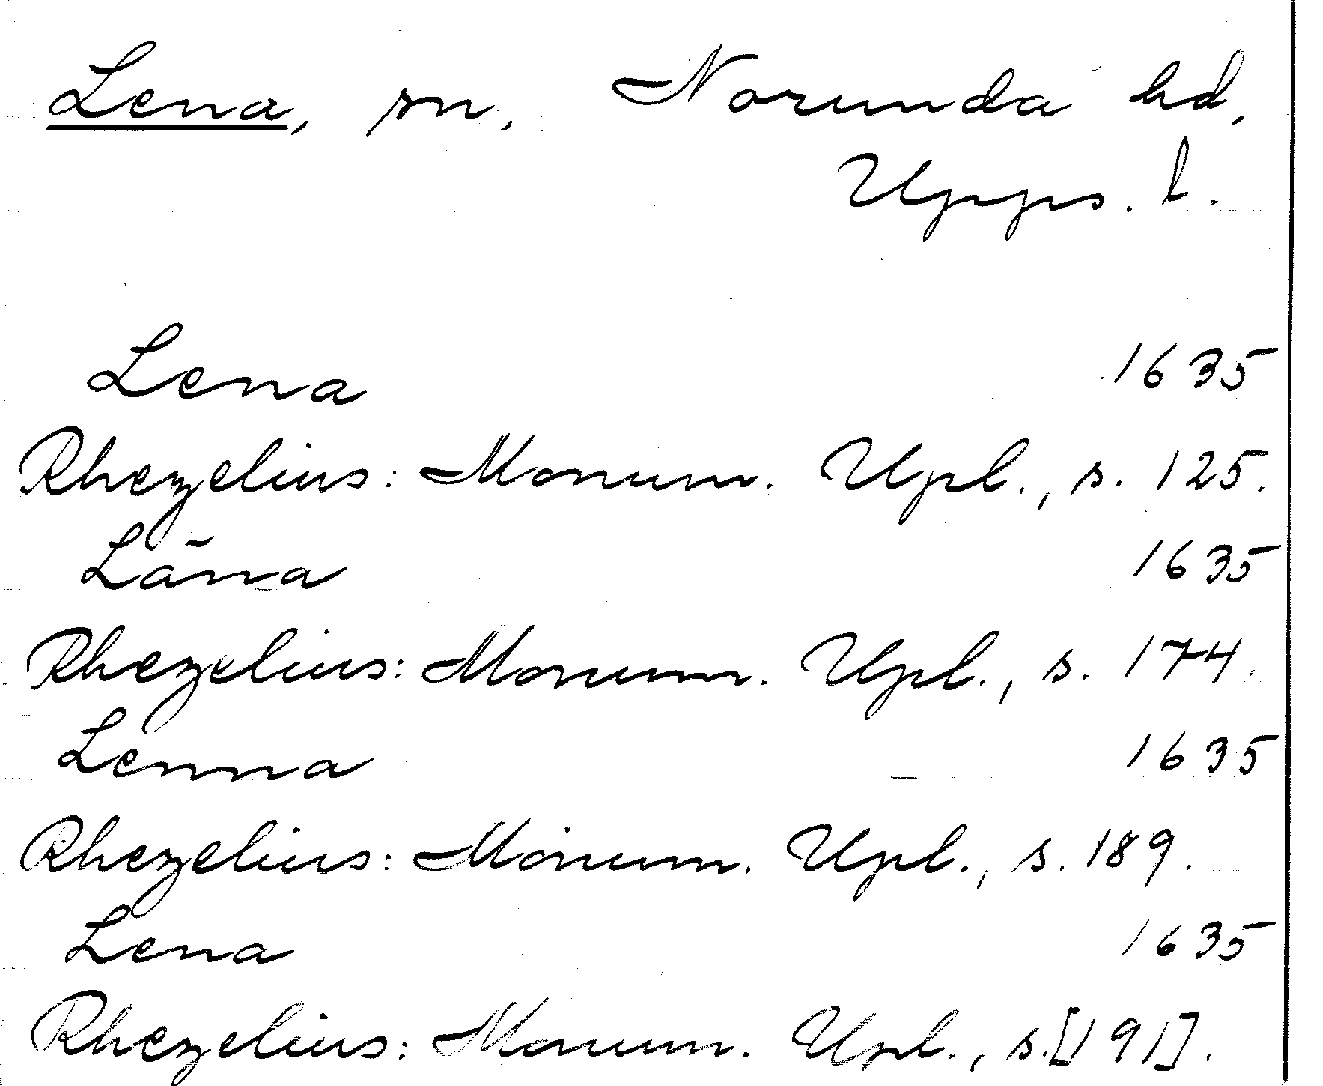 Lena, sn, Norunda hd,
Upps. l.
Lena 1635
Rhezelius: Monum. Upl., s. 125.
Läna 1635
Rhezelius: Monum. Upl., s. 174.
Lenna 1635
Rhezelius: Monum. Upl., s. 189.
Lena 1635
Rhezelius: Monum. Upl., s. [191].